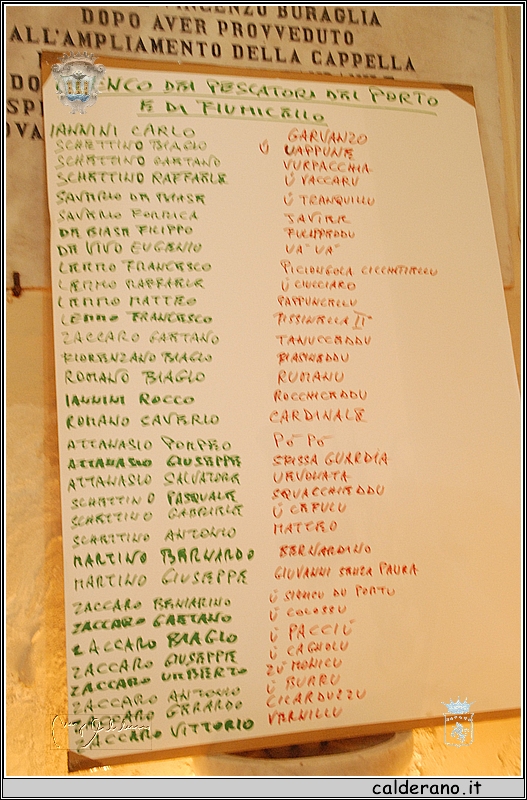 VINCENZO BURAGLIA
DOPO AVER PROVVEDUTO
ALL'AMPLIAMENTO DELLA CAPPELLA
ELENCO DEI PESCATORI DEL PORTO
E DI FIUMICELLO
IANNINI CARLO GARVANZO
SCHETTINO BIAGIO Ù UAPPUNE
SCHETTINO GAETANO VURPACCHIA
SCHETTINO RAFFAELE Ù VACCARU
SAVERIO DE BIASE Ù TRANQUILLU
SAVERIO FORMICA SAVIERE
DE BIASE FILIPPO
DE VIVO EUGENIO VA' VA'
LERMO FRANCESCO PICIONGOLA CICCHETIELLU
LERMO RAFFAELE Ù CIUCCIARO
LERMO MATTEO PAPPUNCELLU
LERMO FRANCESCO PISSINELLA II°
ZACCARO GAETANO TANUCCEDDU
FIORENZANO BIAGIO BIASIEDDU
ROMANO BIAGIO RUMANU
IANNINI ROCCO ROCCHICEDDU
ROMANO SAVERIO CARDINALE
ATTANASIO POMPEO PÒ PÒ
ATTANASIO GIUSEPPE SPISSA GUARDIA
ATTANASIO SALVATORE URVOLATA
SCHETTINO PASQUALE SQUACCHIEDDU
SCHETTINO GABRIELE Ù CEFULU
SCHETTINO ANTONIO MATTEO
MARTINO BERNARDO BERNARDINO
MARTINO GIUSEPPE GIOVANNI SENZA PAURA
ZACCARO BENIAMINO Ù SINNICU DU PORTU
ZACCARO GAETANO Ù COLOSSU
ZACCARO BIAGIO Ù PACCIÙ
ZACCARO GIUSEPPE Ù CAGNOLU
ZACCARO UMBERTO ZÙ MONICU
ZACCARO ANTONIO Ù BURRU
ZACCARO GERARDO CICARDUZZU
ZACCARO VITTORIO VARNILLU
calderano.it